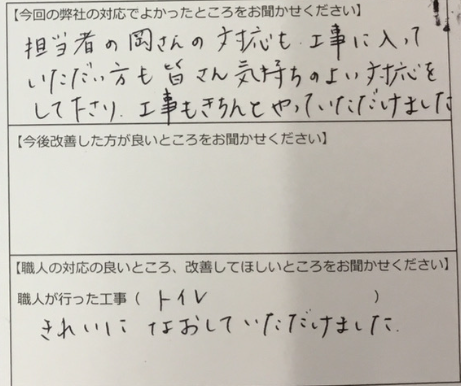 【今回の弊社の対応でよかったところをお聞かせください】
担当者の岡さんの対応も、工事に入って
いただい方も皆さん気持ちのよい対応を
して下さり、工事もきちんとやっていただけました
【今後改善した方が良いところをお聞かせください】
【職人の対応の良いところ、改善してほしいところをお聞かせください】
職人が行った工事（ トイレ ）
きれいになおしていただけました.